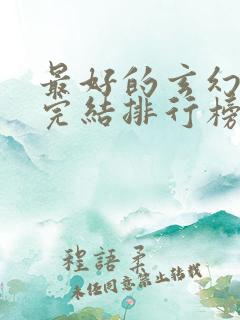 最好的玄幻
完結排行榜
程語柔
未任同意禁止转载